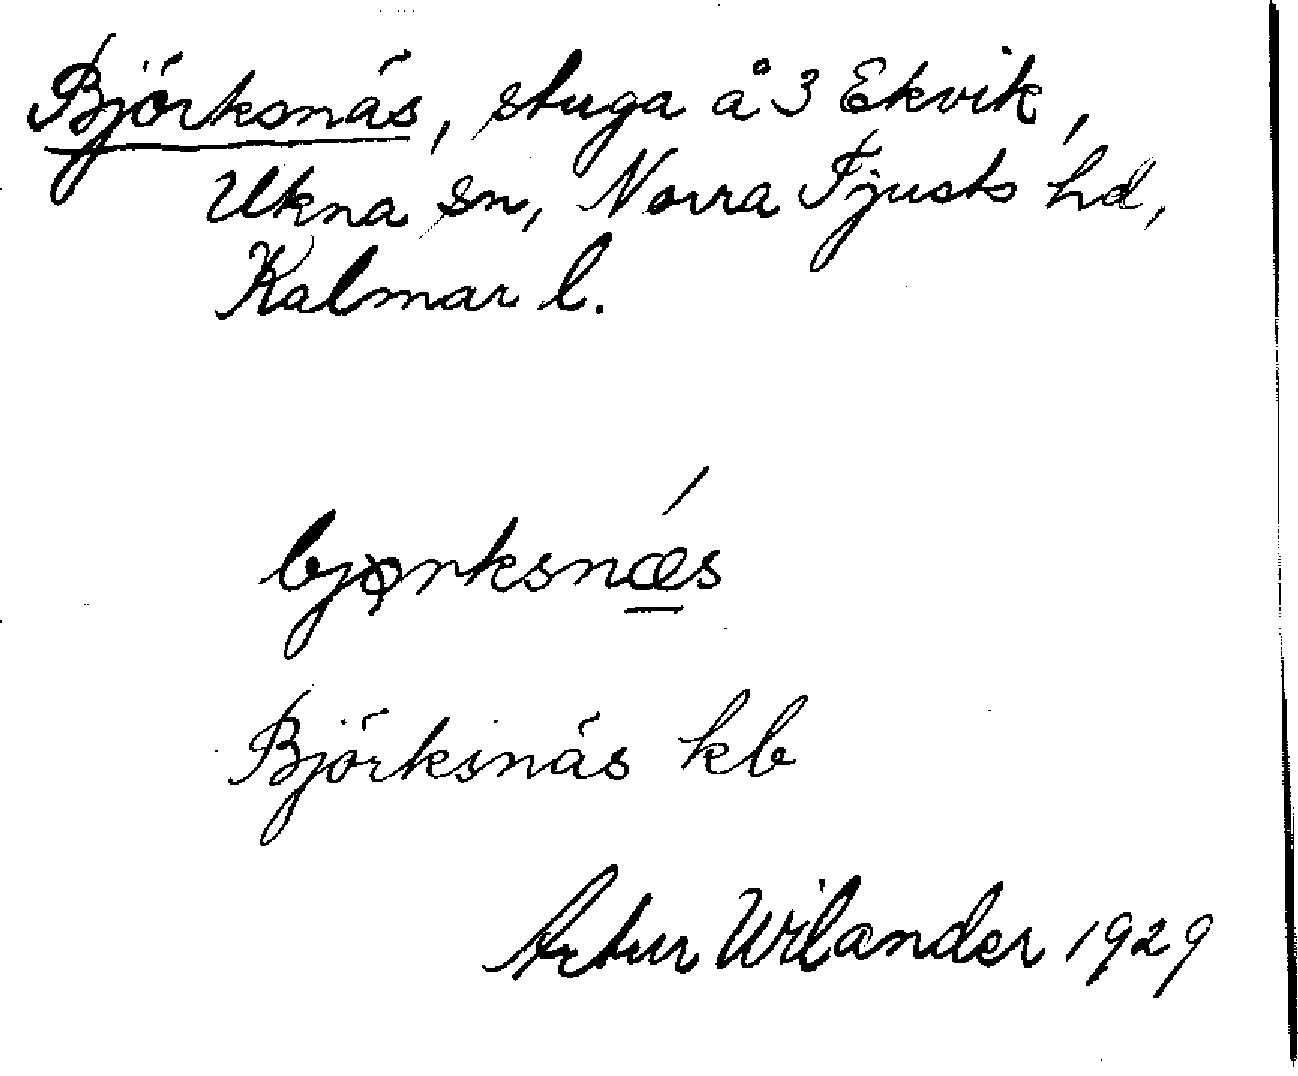 Björksnäs, stuga å 3 Ekvik,
Ukna sn, Norra Tjusts hd,
Kalmar l.
bjørksnæs
Björksnäs kb
Artur Wilander 1929